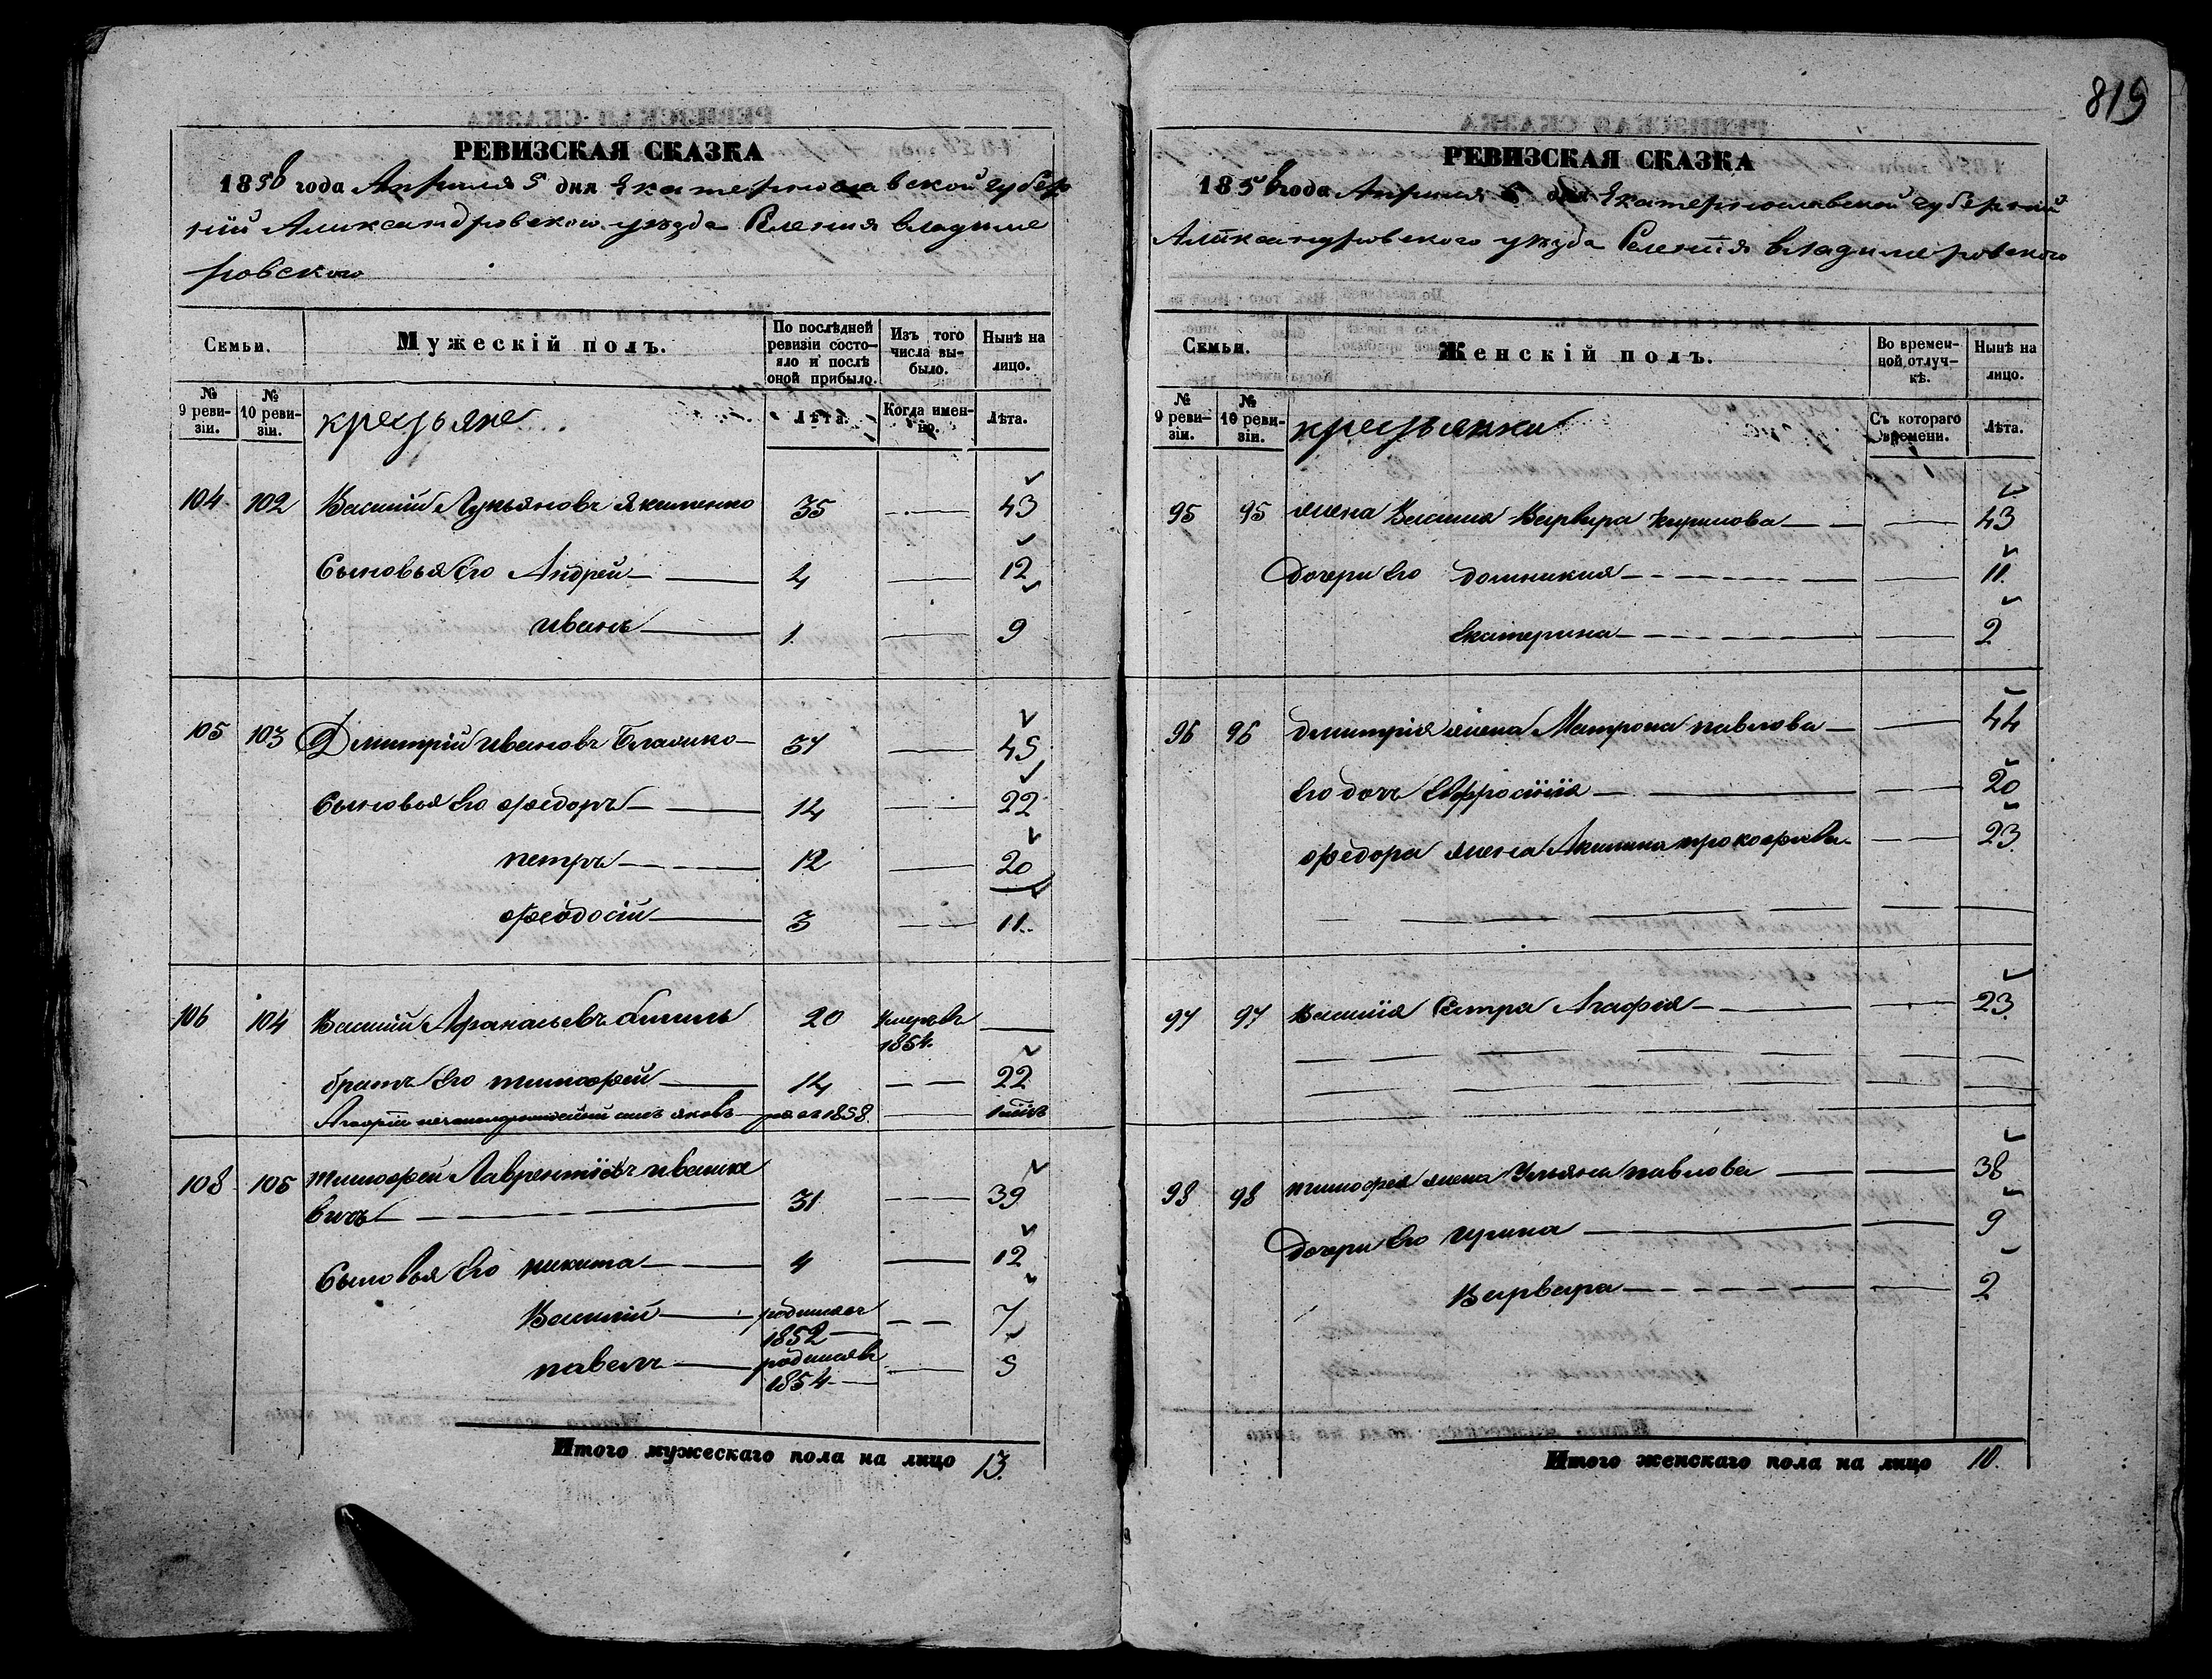 819
РЕВИЗСКАЯ СКАЗКА
1858 года Апреля 5 дня Екатеринославской губер
нiи Александровскаго уезда Селенiя Владиме
ровского
Семьи.
Мужескiй полъ.
По послѣдней ревизiи состояло и послѣ оной прибыло.
Изъ того числа выбыло.
Нынѣ на лицо.
№ 9 ревизiи.
№ 10 ревизiи.
крестьяне
Лѣта.
Когда именно.
Лѣта.
104 102 Василiй Лукьяновъ Якименко 35 43
Сыновья Его Андрей 4 12
иванъ 1 9
105 103 Дмитрiй ивановъ 37 45
Сыновья Его федоръ 14 22
петръ 12 20
феодосiй 3 11
106 104 Василiй Афанасьевъ 20 умеръ въ 1854
братъ Его тимофей 14 22
сынъ яковъ 1858
108 105 тимофей Лаврентiевъ ивашке
вичъ 31 39
Сыновья Его никита 4 12
Василiй родился въ 1852 7
павелъ родился въ 1854 5
Итого мужескаго пола на лицо 13.
РЕВИЗСКАЯ СКАЗКА
1858 года Апреля 5 дня Екатеринославской губернiи
Александровского уезда Селенiя владимеровского
Семьи.
Женскiй полъ.
Во временной отлучкѣ.
Нынѣ на лицо.
№ 9 ревизiи.
№ 10 ревизiи.
крестьянки
Съ котораго времени.
Лѣта.
95 95 жена Василия Варвара Кирилова 43
Дочери Его домникия 11
Екатерина 2
96 96 дмитрiя жена Матрона павлова 44
Его дочь Ефросiнiя 20
федора жена Акилина прокофиева 23
97 97 Василiя Сестра Агафiя 23
98 98 тимофея жена Ульяна павлова 38
Дочери Его ирина 9
Варвара 2
Итого женскаго пола на лицо 10.